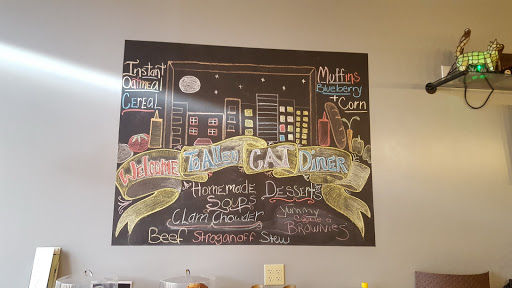 Instant
Oatmeal
Cereal
Muffins
Blueberry
+ Corn
Welcome To Alley CAT Diner
Homemade
Soups
Clam Chowder
Beef Stroganoff Stew
Desserts
Yummy
Brownies